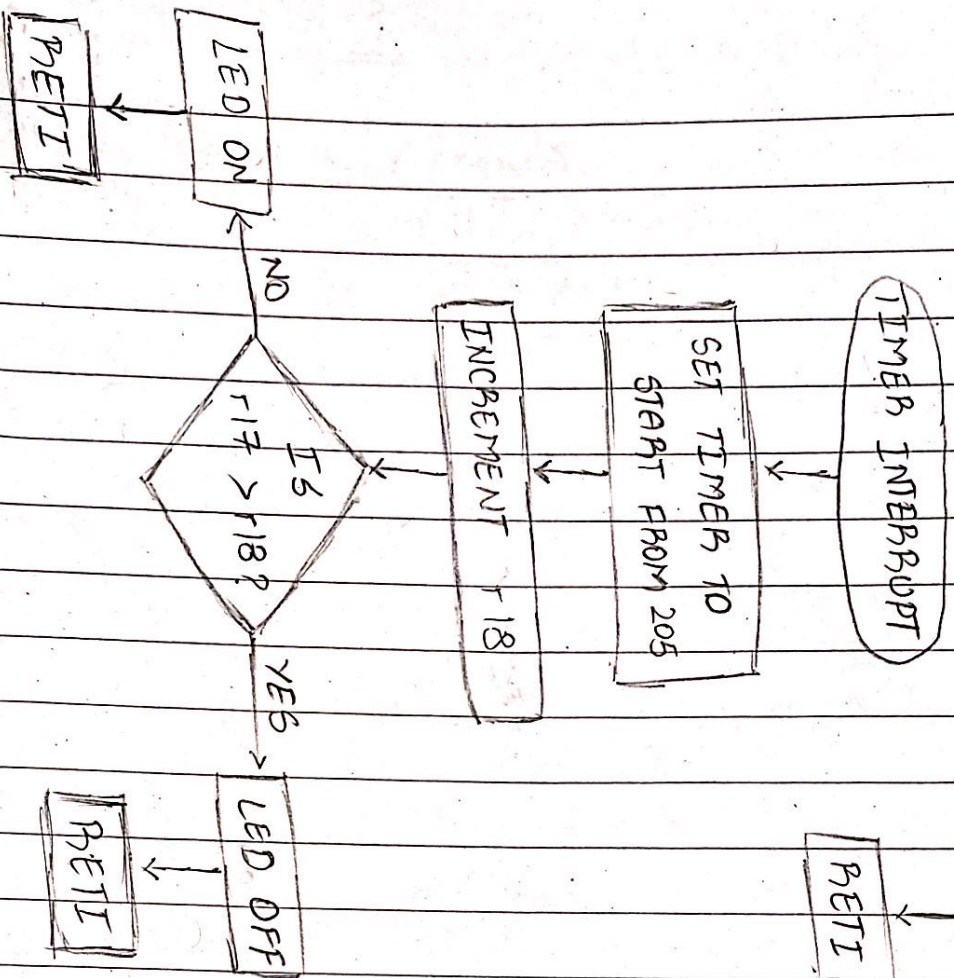 TIMER INTERRUPT
SET TIMER TO
START FROM 205
INCREMENT r18
IS
r17 > r18?
NO
YES
LED ON
RETI
LED OFF
RETI
RETI